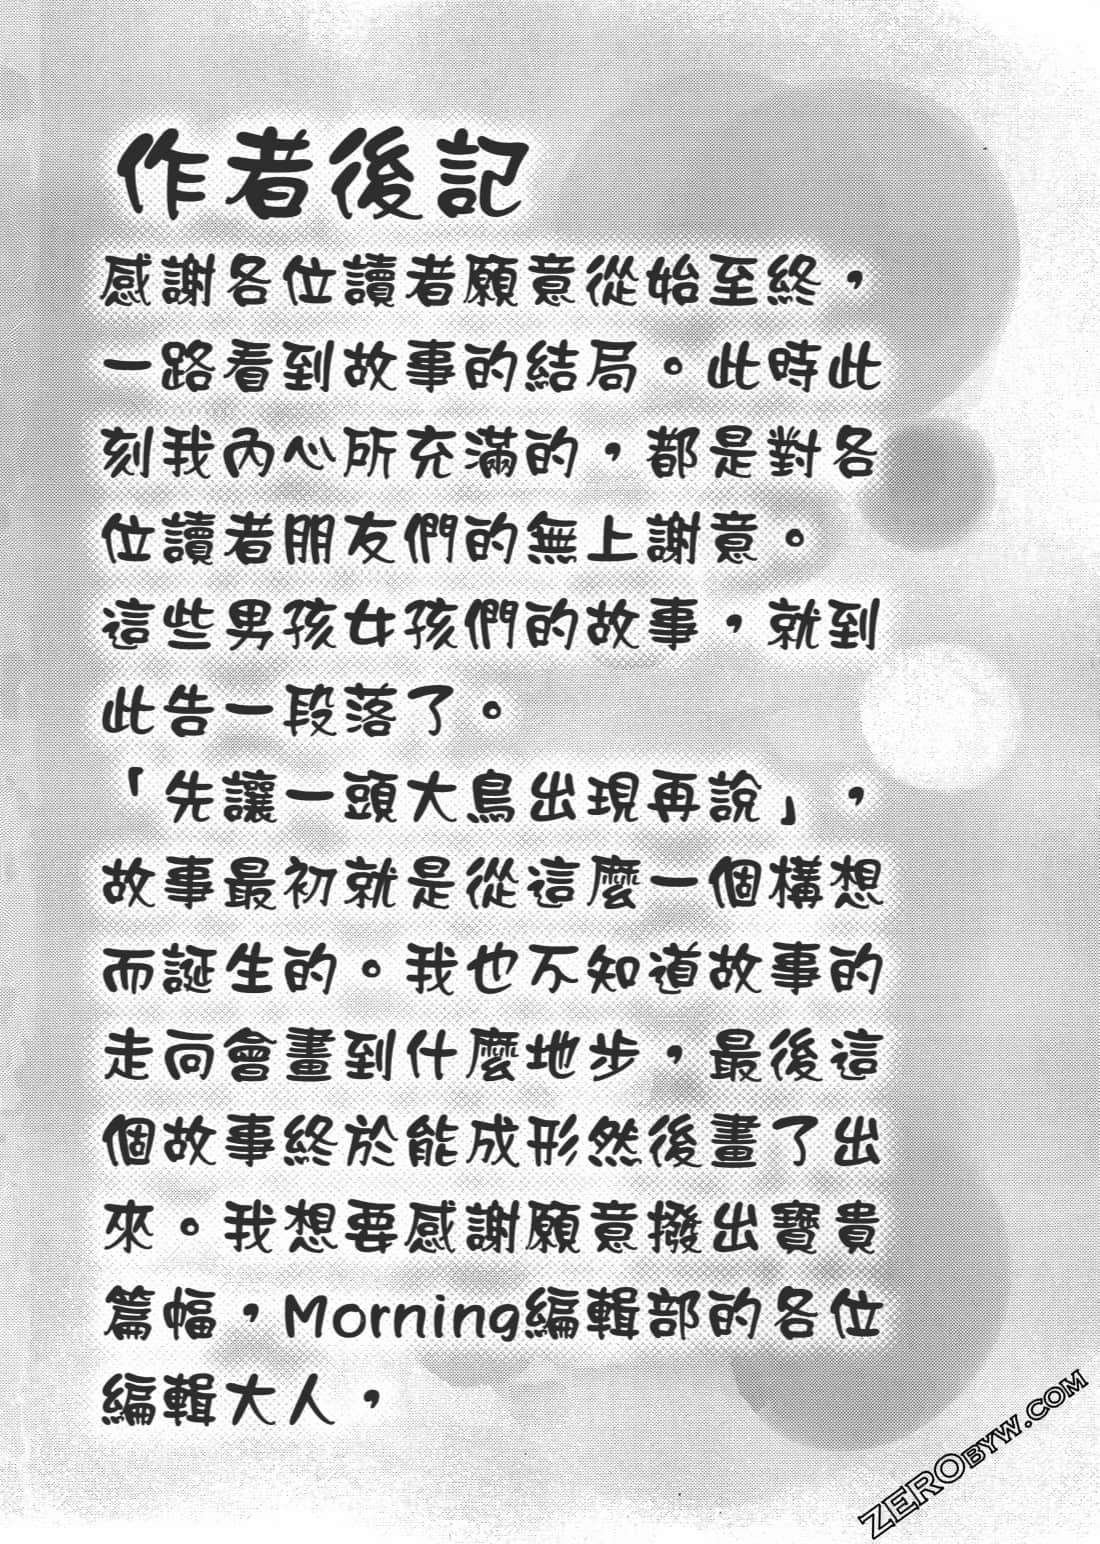 作者後記
感謝各位讀者願意從始至終，
一路看到故事的結局。此時此
刻我內心所充滿的，都是對各
位讀者朋友們的無上謝意。
這些男孩女孩們的故事，就到
此告一段落了。
「先讓一頭大鳥出現再說」，
故事最初就是從這麼一個構想
而誕生的。我也不知道故事的
走向會畫到什麼地步，最後這
個故事終於能成形然後畫了出
來。我想要感謝願意撥出寶貴
篇幅，Morning編輯部的各位
編輯大人，
ZEROBYW.COM